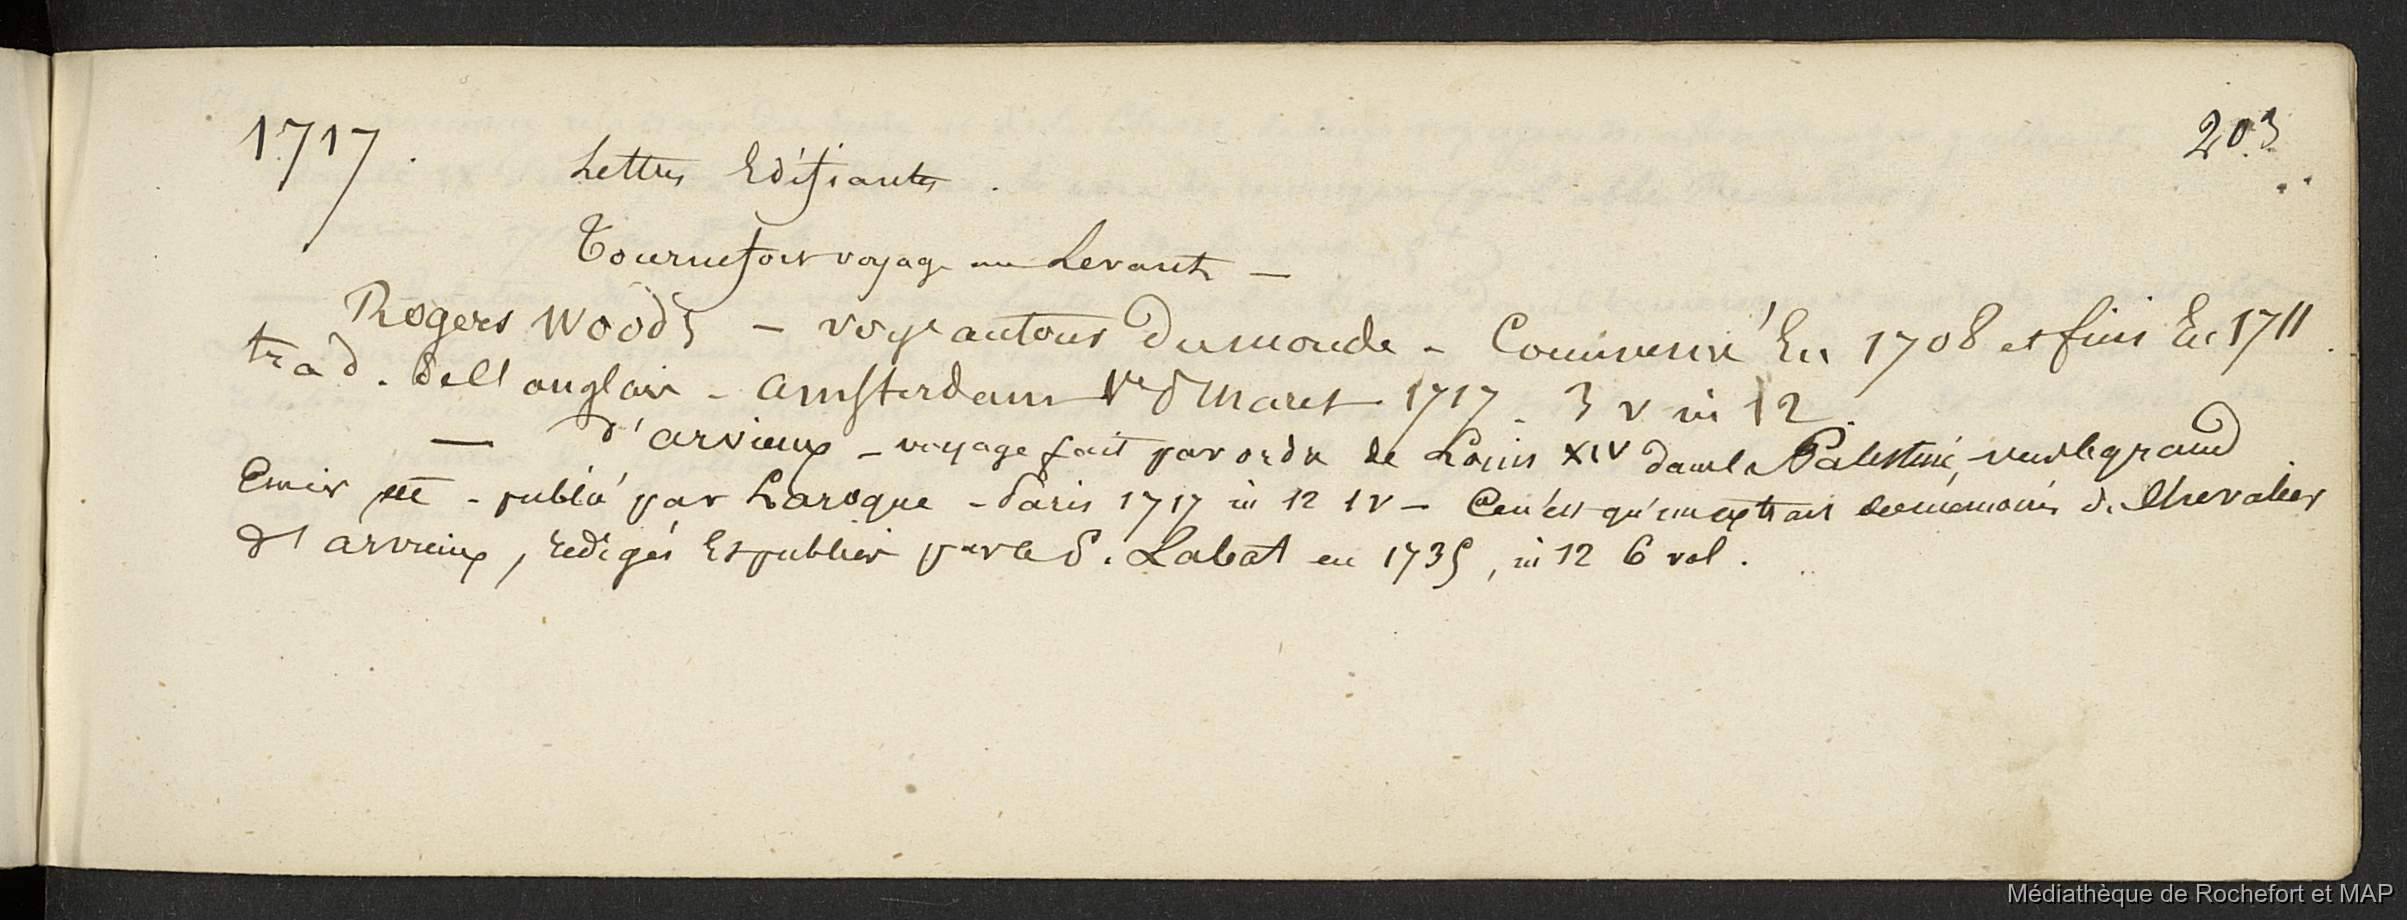 1717.
203
Lettres Edifiantes.
Tournefort voyage au Levant —
Rogers Woods — voye autour du monde - Commencé En 1708 et fini En 1711.
trad. de l'anglais - Amsterdam Ve d Maret 1717. 3 v in 12.
— d'arvieux - voyage fait par ordre de Louis XIV dans la Palestine, vers le grand
Emir - publié par Laroque - Paris 1717 in 12 1 v - Ce n'est qu'un extrait des mémoires du Chevalier
d'arvieux, rédigés Et publiés par le P. Labat en 1735, in 12 6 vol.
Médiathèque de Rochefort et MAP